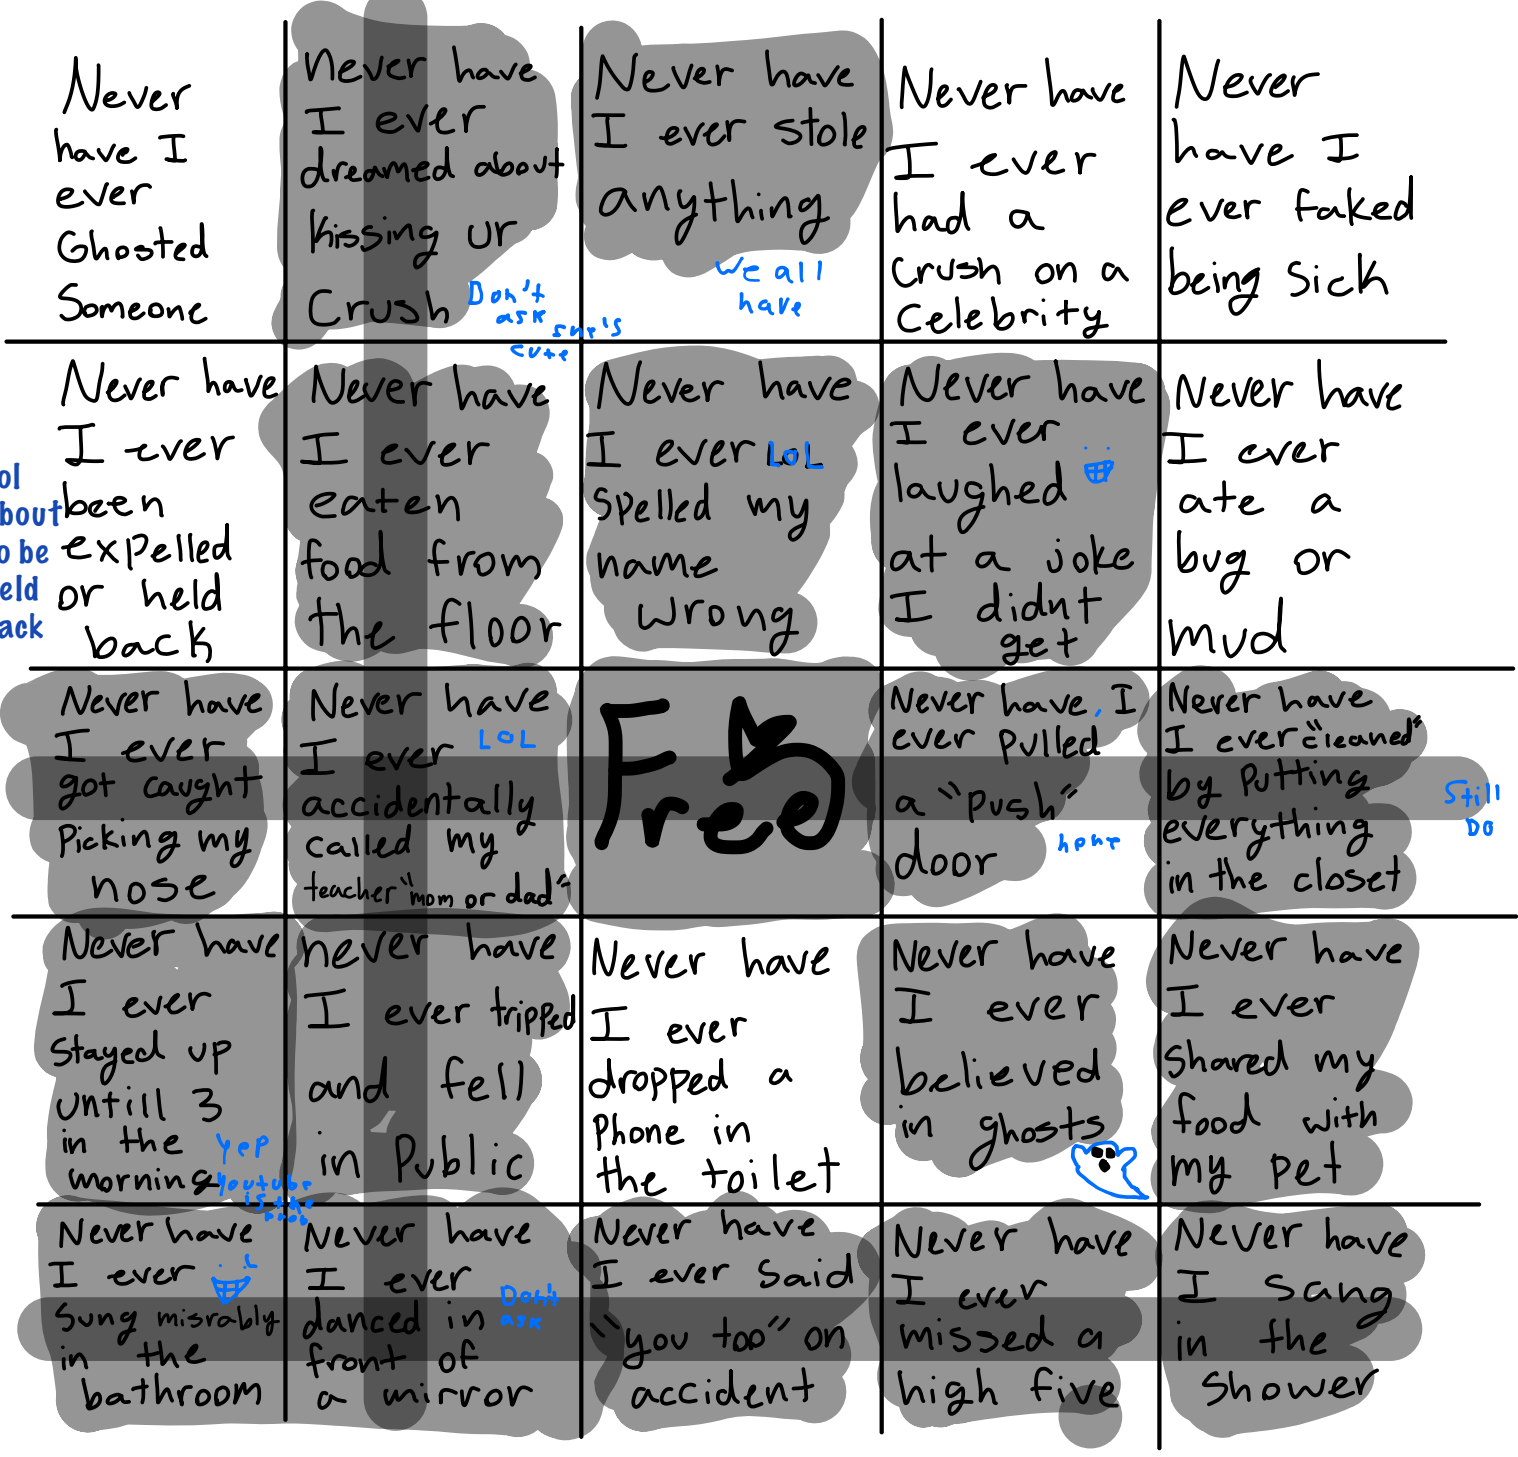 Never
have I
ever
Ghosted
Someone
Never have
I ever
dreamed about
kissing ur
Crush
Don't
ask
she's
cute
Never have
I ever stole
anything
We all
have
Never have
I ever
had a
crush on a
celebrity
Never
have I
ever faked
being sick
ol
bout
o be
eld
ack
Never have
I ever
been
expelled
or held
back
Never have
I ever
eaten
food from
the floor
Never have
I ever LOL
spelled my
name
wrong
Never have
I ever
laughed
at a joke
I didnt
get
Never have
I ever
ate a
bug or
mud
Never have
I ever
got caught
Picking my
nose
Never have
I ever LOL
accidentally
called my
teacher "mom or dad"
Free
Never have, I
ever pulled
a "push"
door
Never have
I ever "cleaned"
by putting
everything
in the closet
Still
DO
Never have
I ever
stayed up
untill 3
in the
morning
yep
youtube
is the
never have
I ever tripped
and fell
in Public
Never have
I ever
dropped a
Phone in
the toilet
Never have
I ever
believed
in ghosts
Never have
I ever
shared my
food with
my pet
Never have
I ever
Sung misrably
in the
bathroom
Never have
I ever
danced in
front of
a mirror
Don't
ask
Never have
I ever said
"you too" on
accident
Never have
I ever
missed a
high five
Never have
I sang
in the
shower